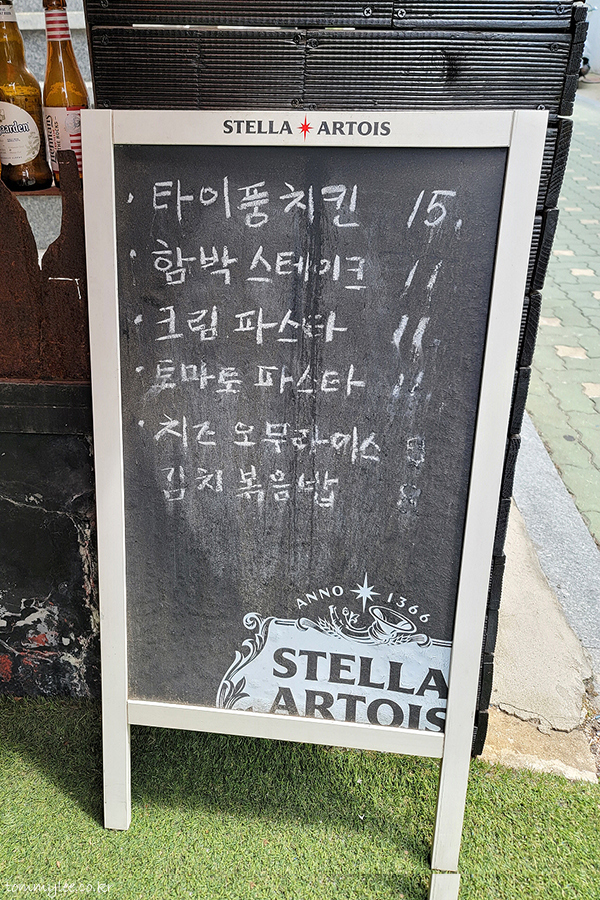 STELLA ARTOIS
· 타이풍 치킨 15.
· 함박 스테이크 11
· 크림 파스타 11.
· 토마토 파스타 11.
· 치즈 오무라이스 8
김치 볶음밥 8
ANNO 1366
STELLA
ARTOIS
tommyjlee.co.kr